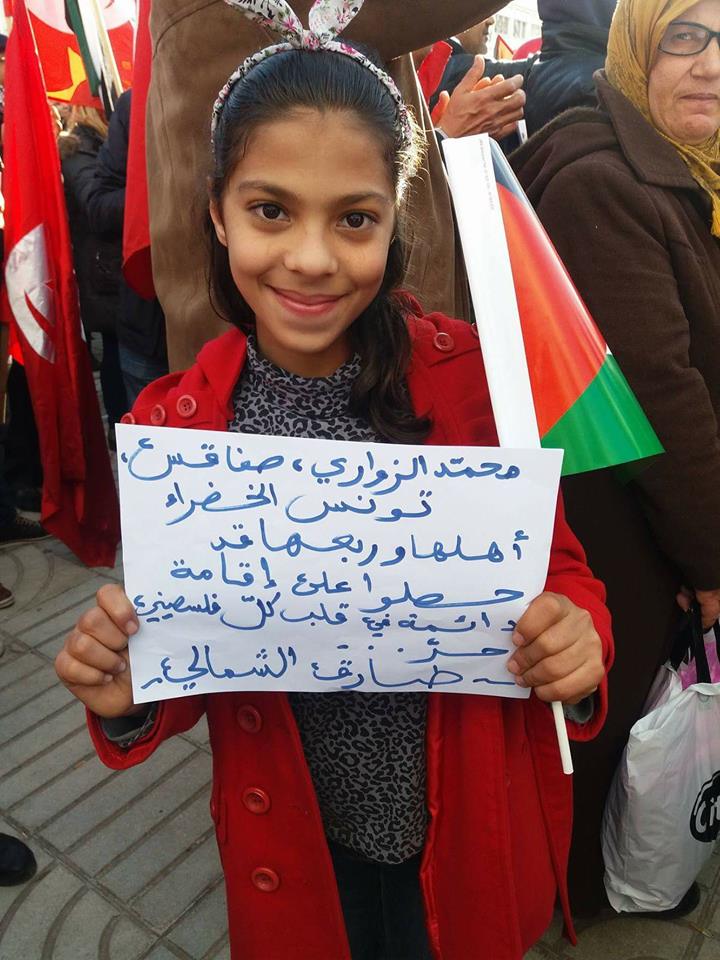 محمّد الزواري، صفاقس،
تونس الخضراء
أهلها وربعها قد
حصلوا على إقامة
دائمة في قلب كلّ فلسطيني
حرّ
- طارق الشمالي -
Cit